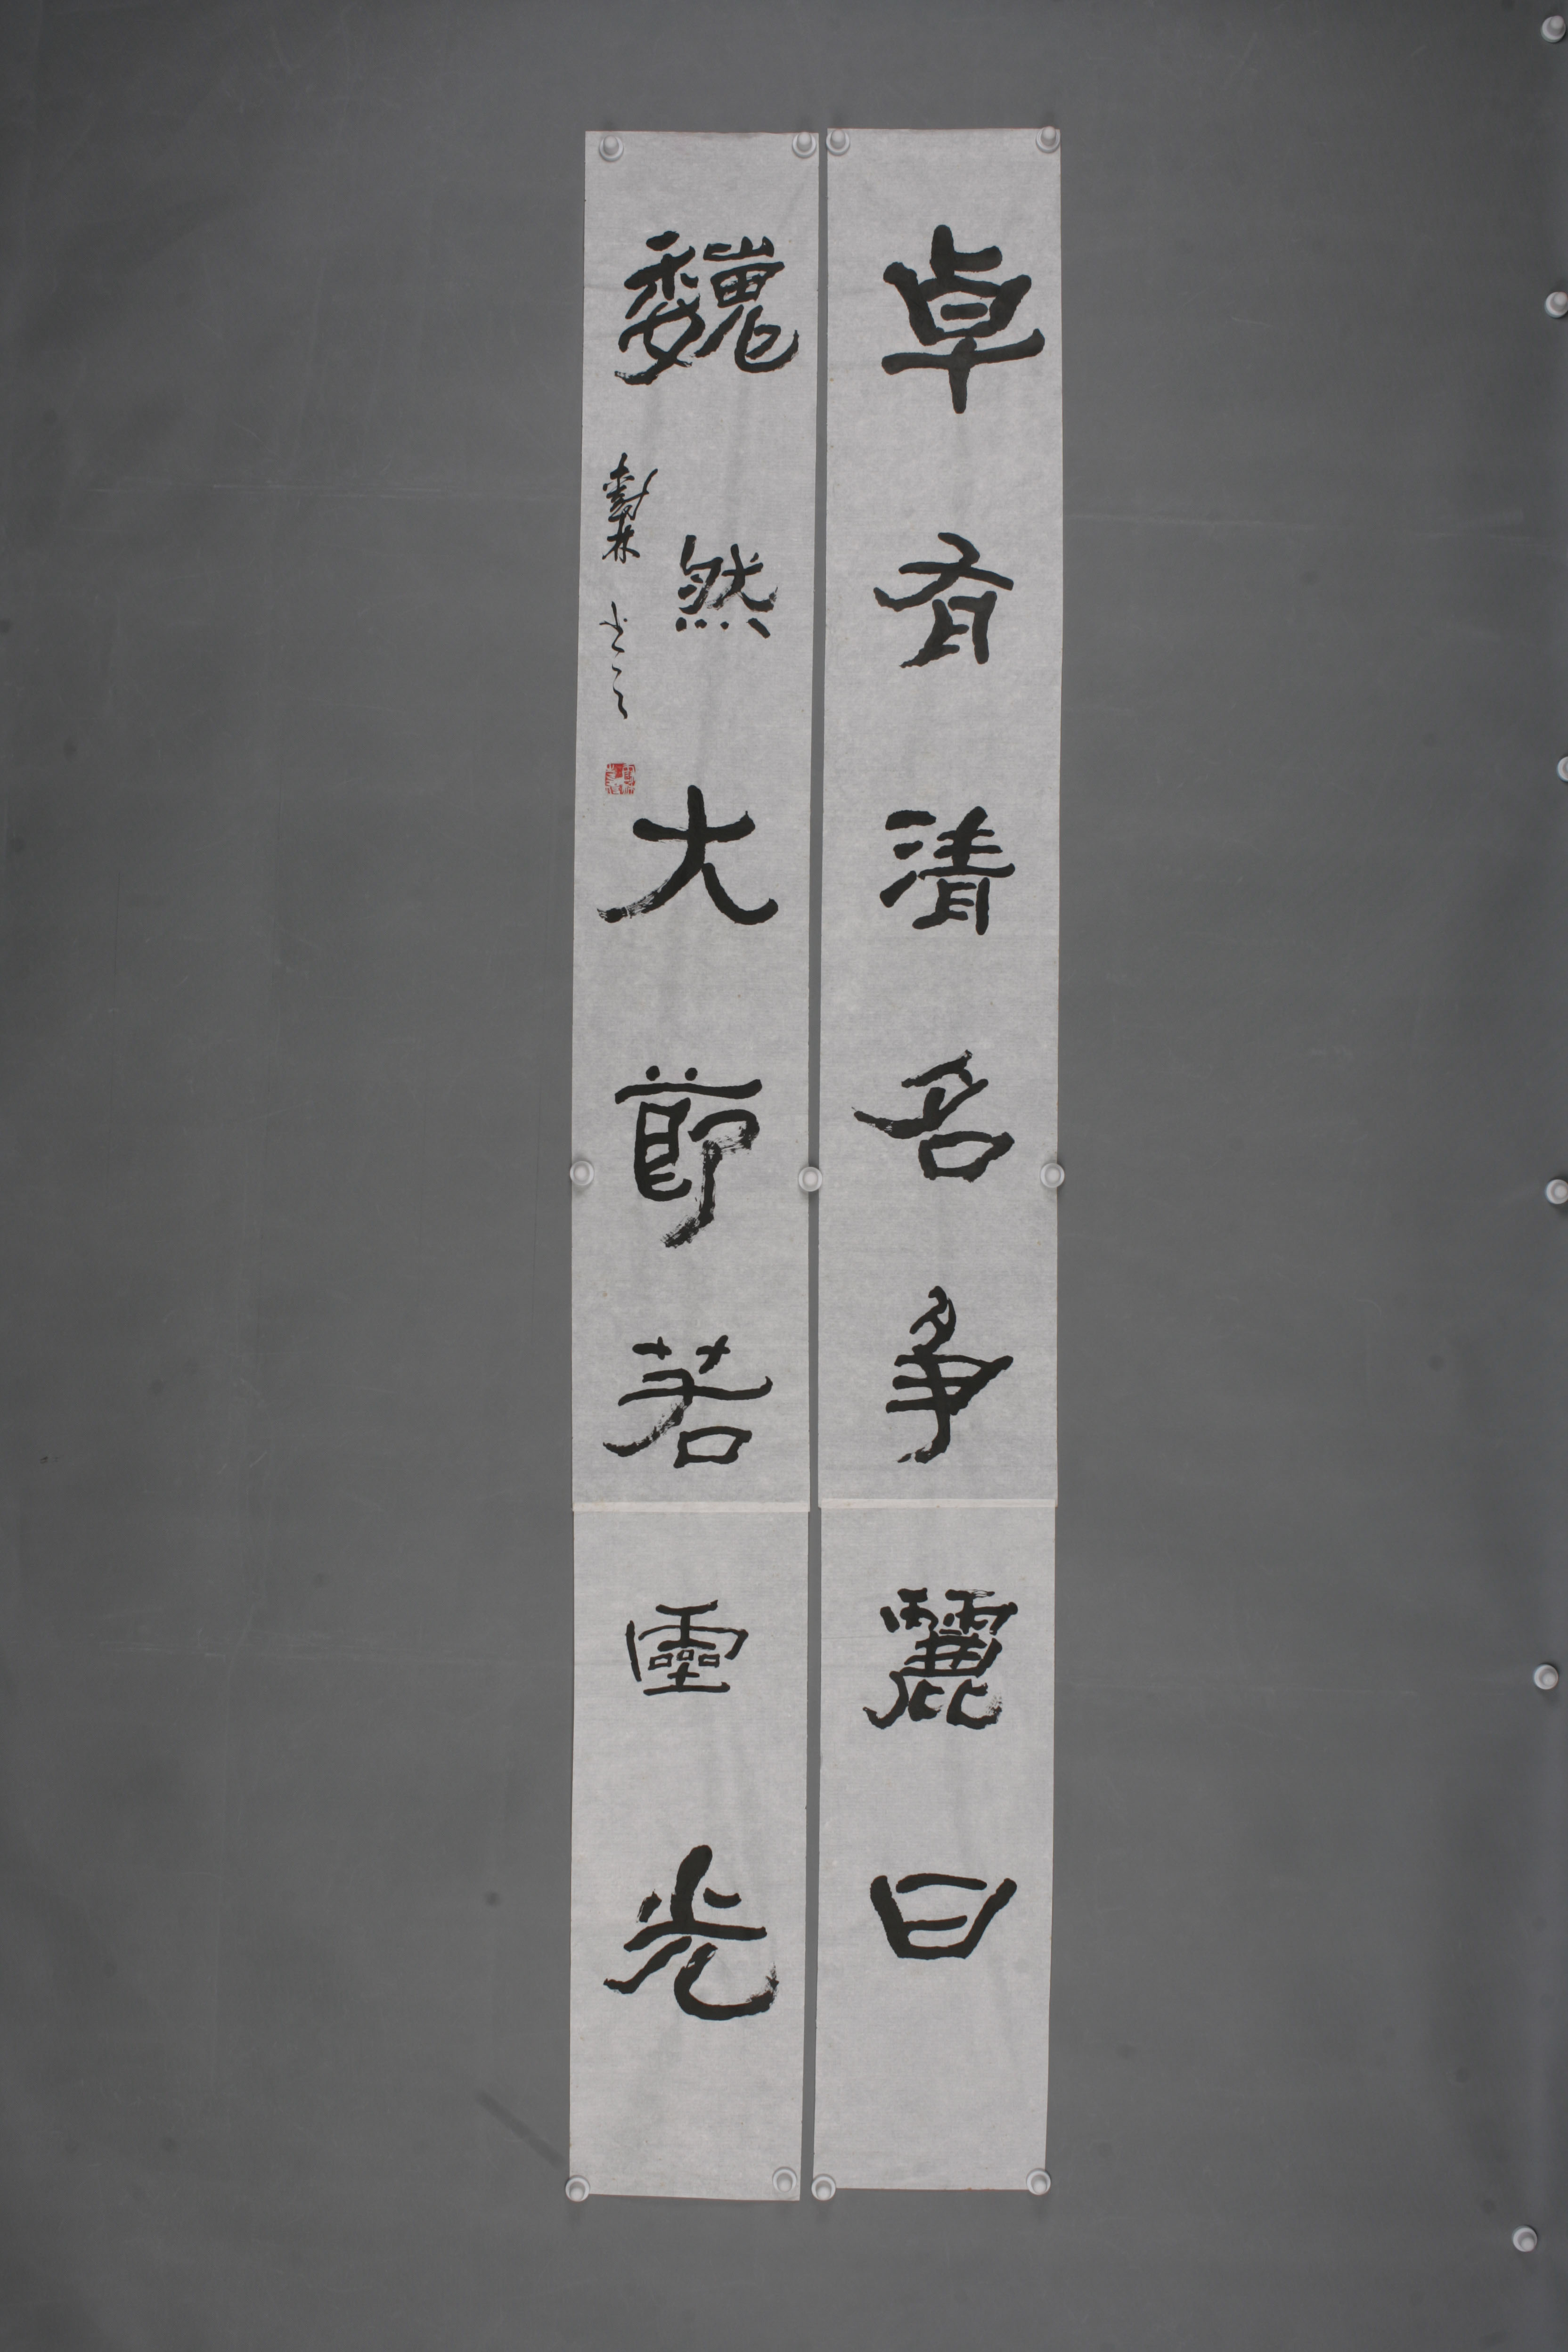 卓有清名争麗日
巍然大節若靈光
樹林書